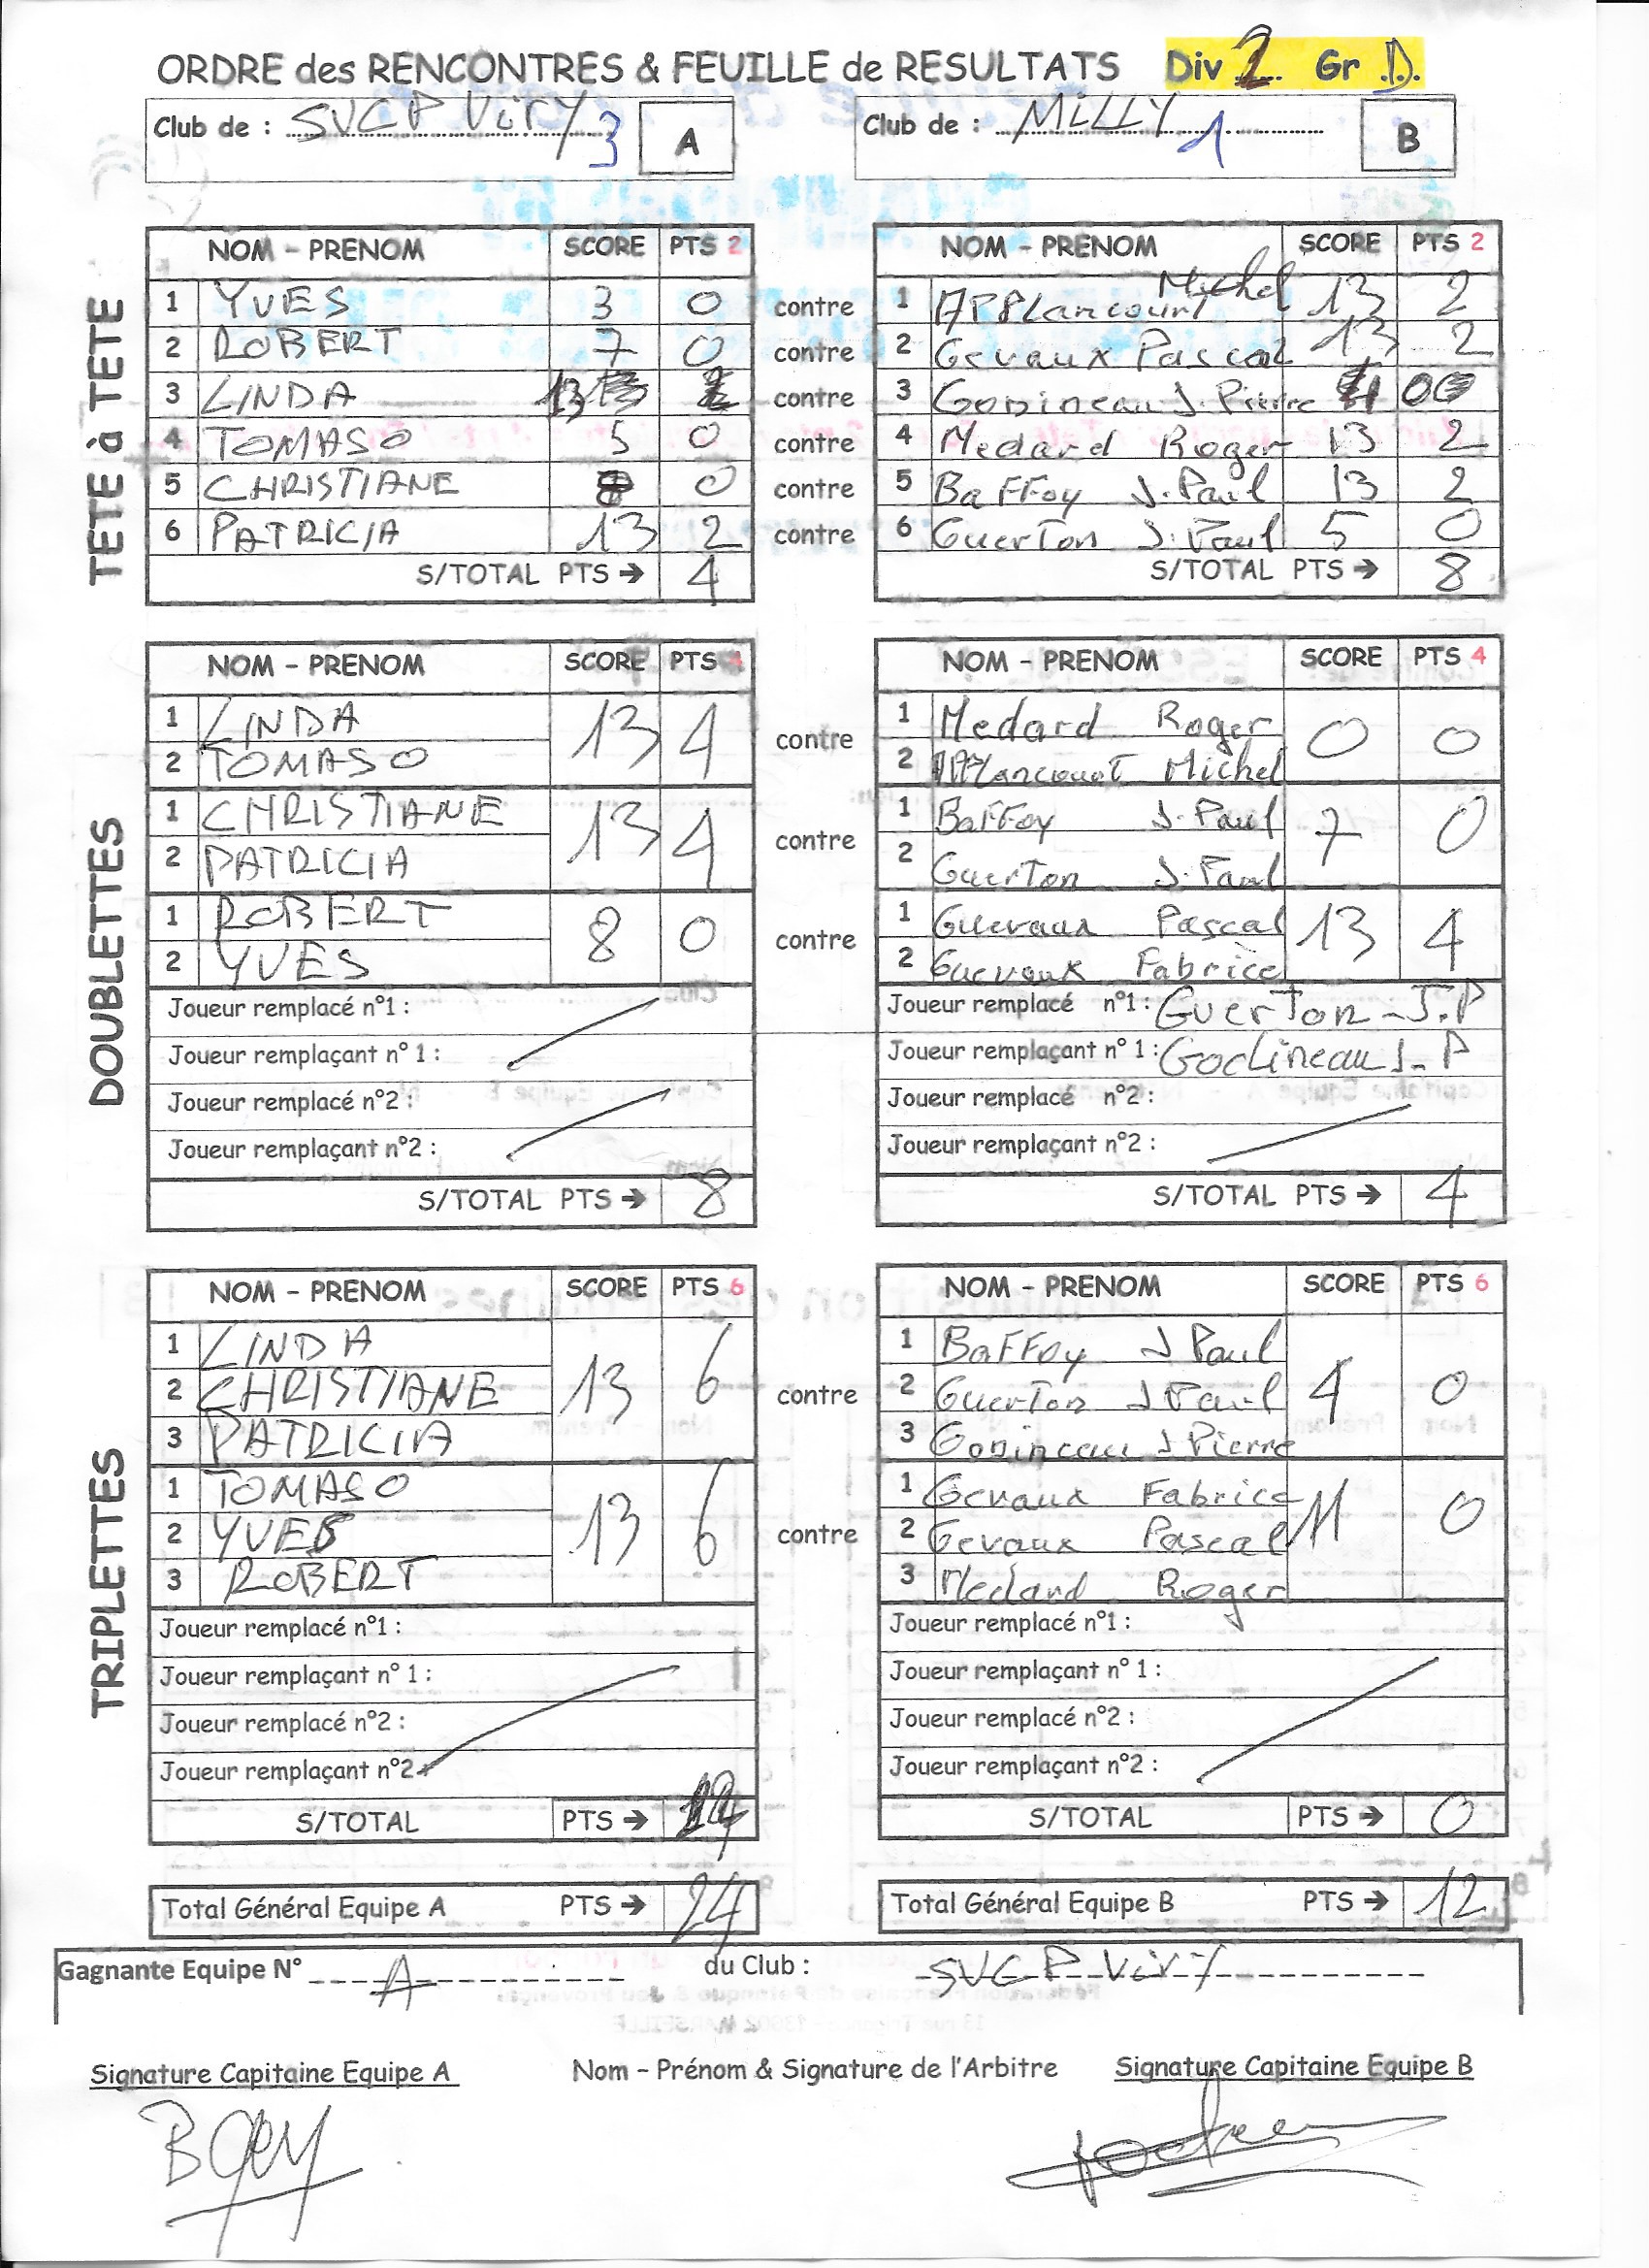 ORDRE des RENCONTRES & FEUILLE de RESULTATS Div 2 Gr D.
Club de : SVCP Vitry 3 A
Club de : MILLY 1 B
TETE à TETE
NOM - PRENOM SCORE PTS 2 NOM - PRENOM SCORE PTS 2
1 YVES 3 0 contre 1 Michel 13 2
2 ROBERT 7 0 contre 2 Gevaux Pascal 13 2
3 LINDA 13 2 contre 3 Gonineau J. Pierre 0
4 TOMASO 5 0 contre 4 Medard Roger 13 2
5 CHRISTIANE 0 contre 5 Baffoy J. Paul 13 2
6 PATRICIA 13 2 contre 6 Guerton J. Paul 5 0
S/TOTAL PTS → 4 S/TOTAL PTS → 8
DOUBLETTES
NOM - PRENOM SCORE PTS 4 NOM - PRENOM SCORE PTS 4
1 LINDA 13 4 contre 1 Medard Roger 0 0
2 TOMASO 2 Michel
1 CHRISTIANE 13 4 contre 1 Baffoy J. Paul 7 0
2 PATRICIA 2 Guerton J. Paul
1 ROBERT 8 0 contre 1 Guevaux Pascal 13 4
2 YVES 2 Guevaux Fabrice
Joueur remplacé n°1 : Joueur remplacé n°1 : Guerton - J.P
Joueur remplaçant n° 1 : Joueur remplaçant n° 1 : Godineau J-P
Joueur remplacé n°2 : Joueur remplacé n°2 :
Joueur remplaçant n°2 : Joueur remplaçant n°2 :
S/TOTAL PTS → 8 S/TOTAL PTS → 4
TRIPLETTES
NOM - PRENOM SCORE PTS 6 NOM - PRENOM SCORE PTS 6
1 LINDA 13 6 contre 1 Baffoy J Paul 4 0
2 CHRISTIANE 2 Guerton J Paul
3 PATRICIA 3 Gonineau J Pierre
1 TOMASO 13 6 contre 1 Gevaux Fabrice 11 0
2 YVES 2 Gevaux Pascal
3 ROBERT 3 Medard Roger
Joueur remplacé n°1 : Joueur remplacé n°1 :
Joueur remplaçant n° 1 : Joueur remplaçant n° 1 :
Joueur remplacé n°2 : Joueur remplacé n°2 :
Joueur remplaçant n°2 Joueur remplaçant n°2 :
S/TOTAL PTS → 12 S/TOTAL PTS → 0
Total Général Equipe A PTS → 24 Total Général Equipe B PTS → 12
Gagnante Equipe N° A du Club : SVCP Vitry
Signature Capitaine Equipe A Nom - Prénom & Signature de l'Arbitre Signature Capitaine Equipe B